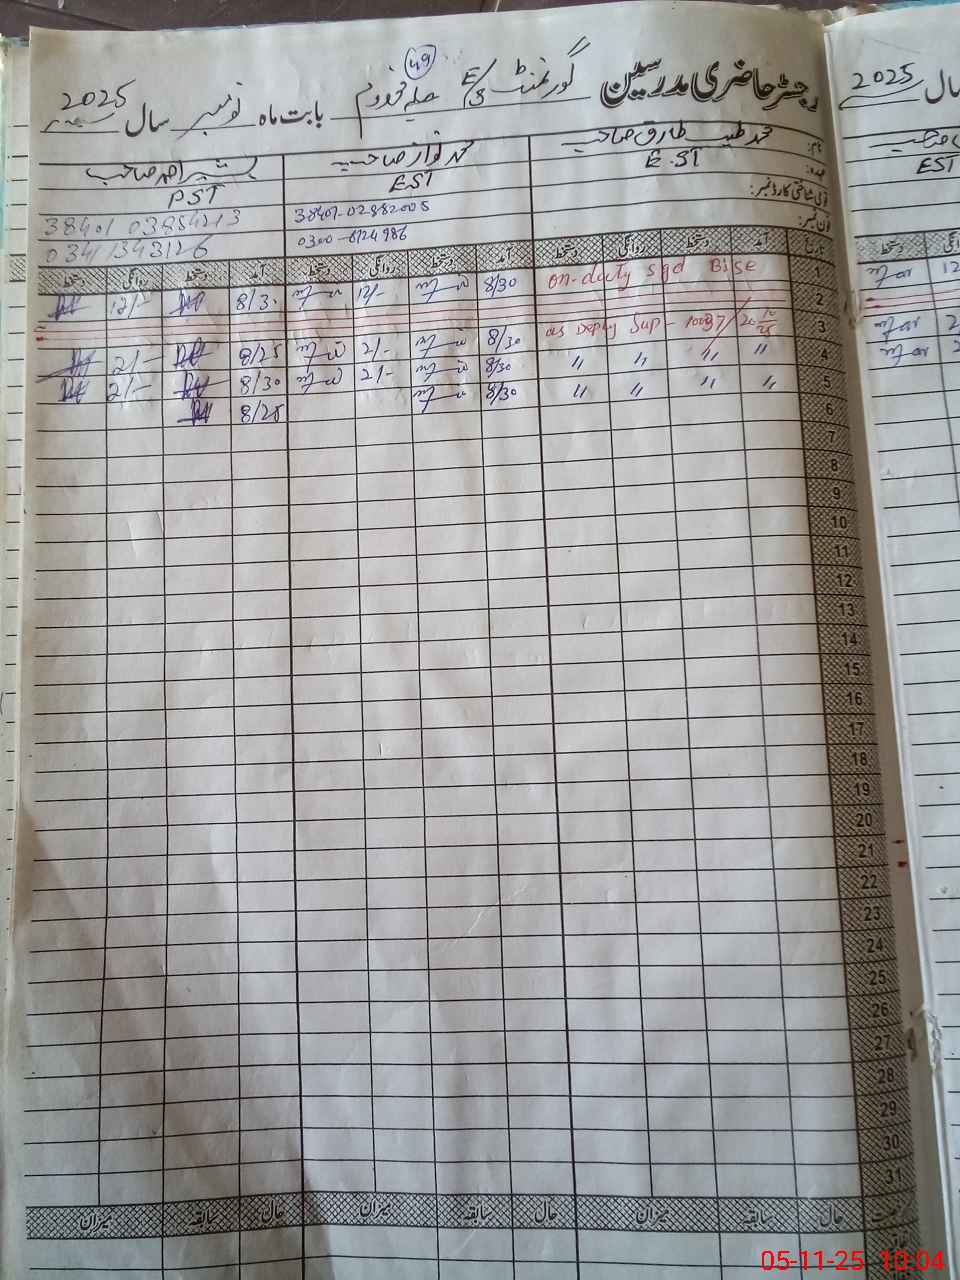 رجسٹر حاضری مدرسین گورنمنٹ E/S بابت ماہ نومبر سال 2025
49
نام: محمد طیب طارق صاحب محمد نواز صاحب بشیر احمد صاحب
عہدہ: E.ST EST PST
قومی شناختی کارڈ نمبر: 38401-02882005 38401 03854213
فون نمبر: 0300-6124986 03411343126
تاریخ آمد دستخط روانگی دستخط آمد دستخط روانگی دستخط آمد دستخط روانگی دستخط
1 on-duty sgd Bise 8/30 12/- 8/30 12/-
2
3 as Deputy Sup- 8/30 2/- 8/25 2/-
4 " " " " 8/30 2/- 8/30 2/-
5 " " " " 8/30 8/25
6
7
8
9
10
11
12
13
14
15
16
17
18
19
20
21
22
23
24
25
26
27
28
29
30
31
حال سابقہ میزان حال سابقہ میزان حال سابقہ میزان
سال 2025
EST
05-11-25 10:04